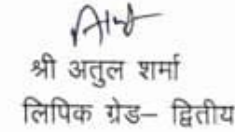 श्री अतुल शर्मा
लिपिक ग्रेड– द्वितीय